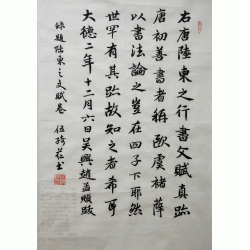 右唐陸柬之行書文賦真跡
唐初善書者稱歐虞褚薛
以書法論之豈在四子下耶然
世罕有其跡故知之者希耳
大德二年十二月六日吳興趙孟頫跋
錄題陸柬之文賦卷